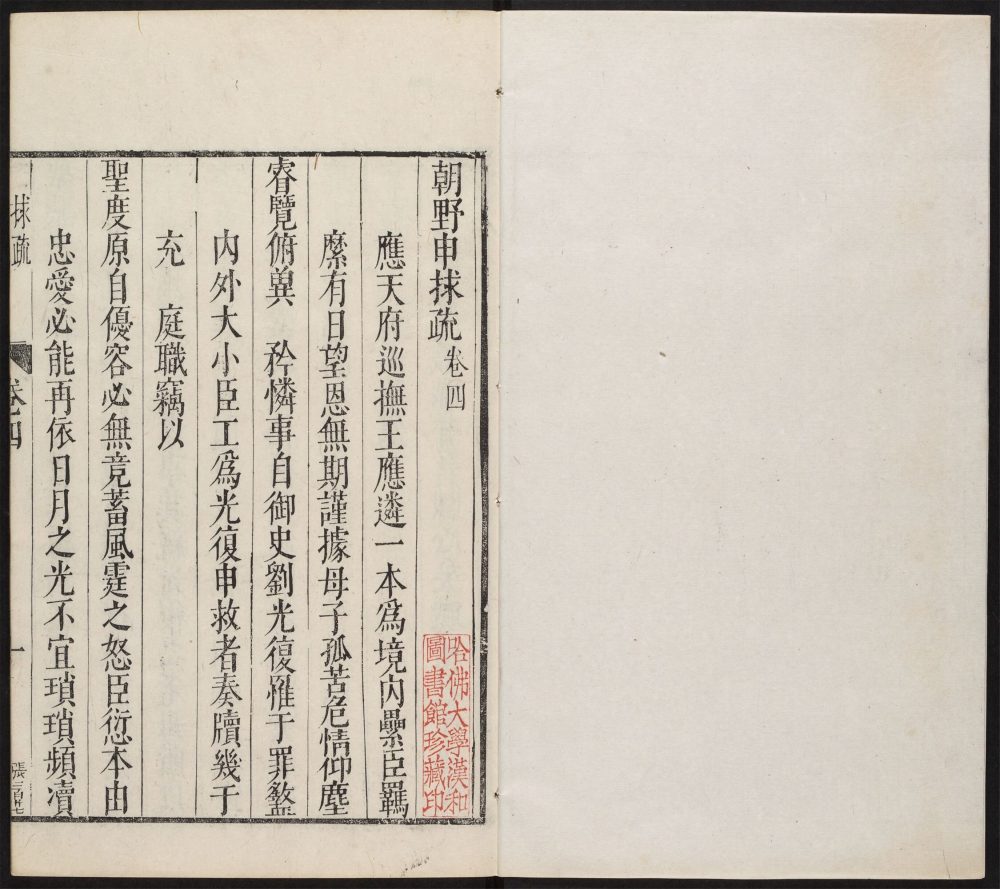 朝野申捄疏 卷四
應天府巡撫王應遴一本爲境内纍臣羈
縻有日望恩無期謹據母子孤苦危情仰塵
睿覽俯兾 矜憐事自御史劉光復罹于罪盩
内外大小臣工爲光復申救者奏牘幾于
充 庭職竊以
聖度原自優容必無竟蓄風霆之怒臣愆本由
忠愛必能再依日月之光不宜瑣瑣頻凟
捄疏 卷四 一
哈佛大學漢和
圖書館珍藏印